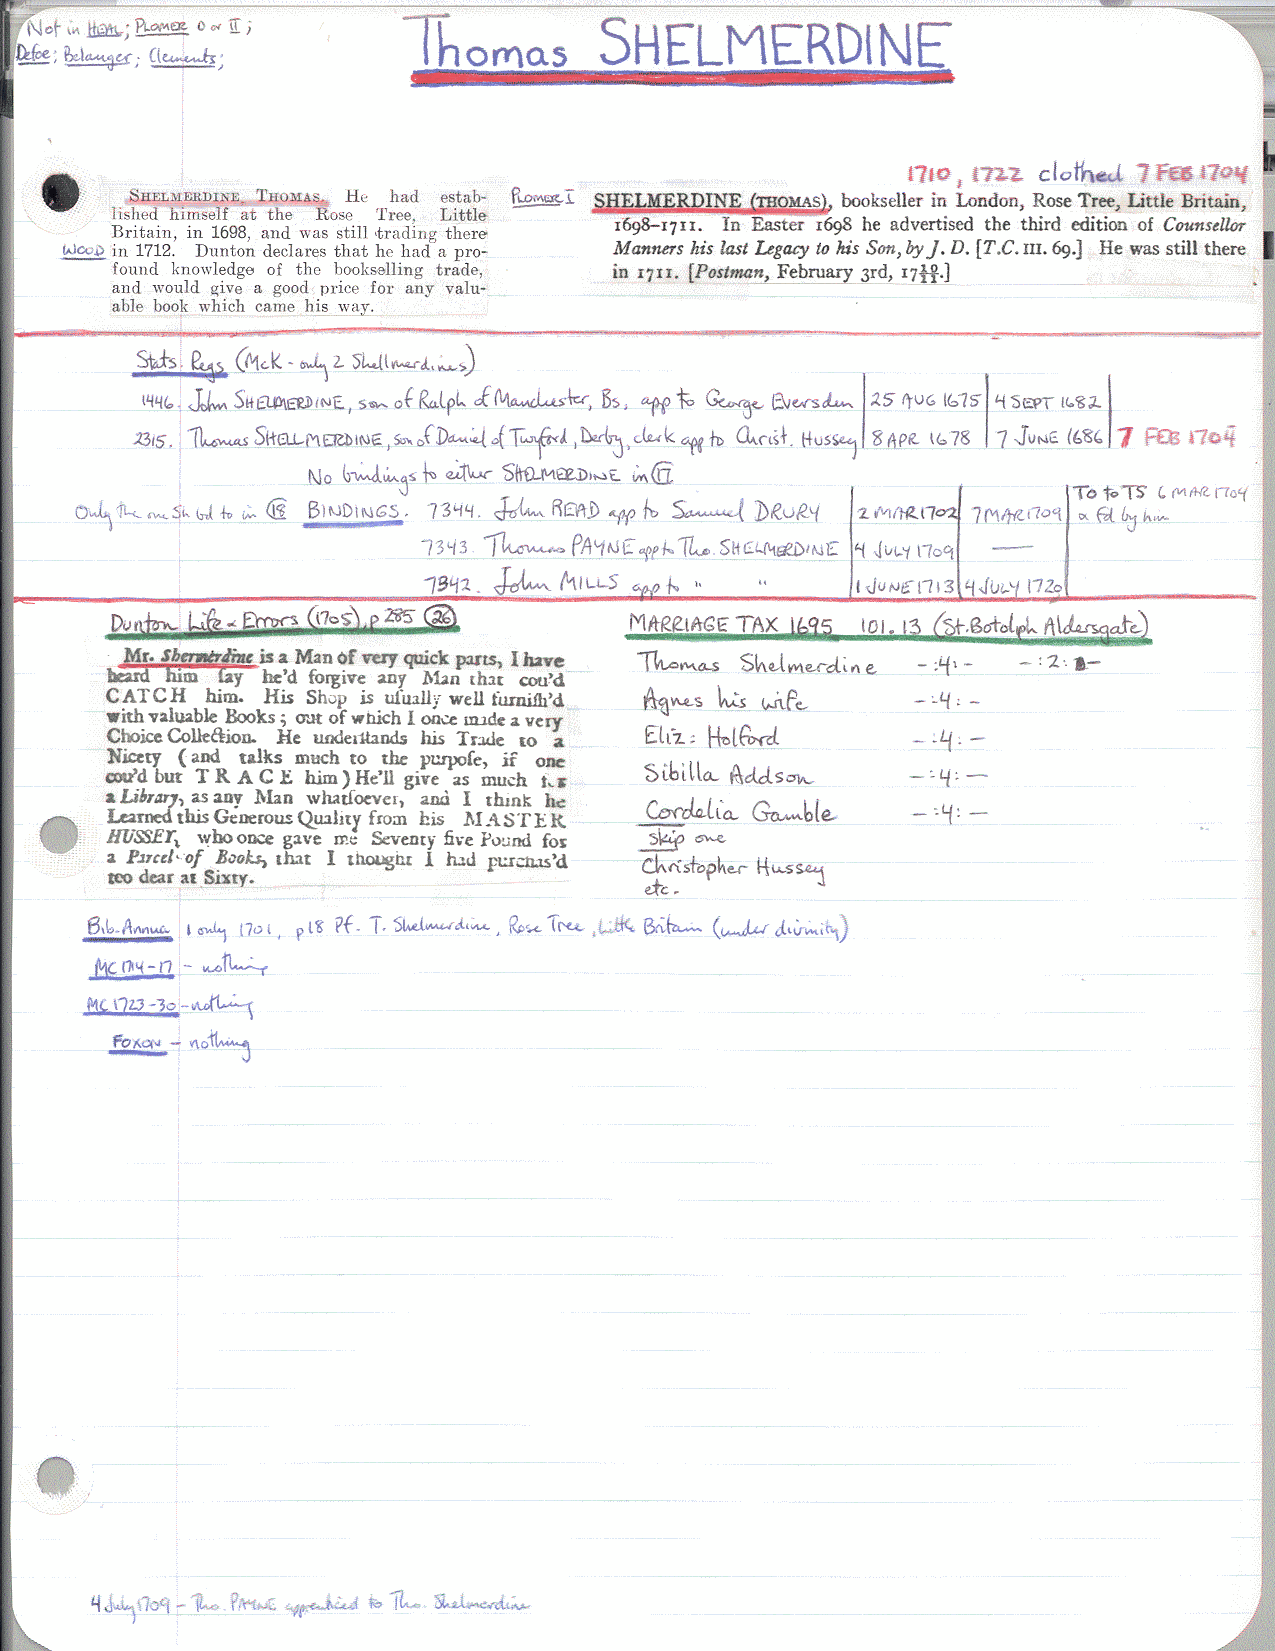 Not in HEAL; PLOMER 0 or II;
Defoe; Belanger; Clements;
Thomas SHELMERDINE
1710, 1722 clothed 7 FEB 1704
SHELMERDINE, THOMAS. He had estab-
lished himself at the Rose Tree, Little
Britain, in 1698, and was still trading there
WOOD in 1712. Dunton declares that he had a pro-
found knowledge of the bookselling trade,
and would give a good price for any valu-
able book which came his way.
PLOMER I
SHELMERDINE (THOMAS), bookseller in London, Rose Tree, Little Britain,
1698-1711. In Easter 1698 he advertised the third edition of Counsellor
Manners his last Legacy to his Son, by J. D. [T.C. III. 69.] He was still there
in 1711. [Postman, February 3rd, 17 .]
Stats. Regs (McK - only 2 Shellmerdines)
1446. John SHELMERDINE, son of Ralph of Manchester, Bs, app to George Eversden 25 AUG 1675 4 SEPT 1682
2315. Thomas SHELLMERDINE, son of Daniel of Twyford, Derby, clerk app to Christ. Hussey 8 APR 1678 7 JUNE 1686 7 FEB 1704
No bindings to either SHELMERDINE in 17
Only the one Sh bd to in 18 BINDINGS. 7344. John READ app to Samuel DRURY 2 MAR 1702 7 MAR 1709 To to TS 6 MAR 1704
& fd by him
7343. Thomas PAYNE app to Tho. SHELMERDINE 4 JULY 1709 —
7342. John MILLS app to " " 1 JUNE 1713 4 JULY 1720
Dunton Life & Errors (1705), p 285 26
Mr. Shermerdine is a Man of very quick parts, I have
heard him say he'd forgive any Man that cou'd
CATCH him. His Shop is usually well furnish'd
with valuable Books; out of which I once made a very
Choice Collection. He understands his Trade to a
Nicety (and talks much to the purpose, if one
cou'd but TRACE him) He'll give as much for
a Library, as any Man whatsoever, and I think he
Learned this Generous Quality from his MASTER
HUSSEY, who once gave me Seventy five Pound for
a Parcel of Books, that I thought I had purchas'd
too dear at Sixty.
MARRIAGE TAX 1695 101.13 (St. Botolph Aldersgate)
Thomas Shelmerdine -:4:- -:2:-
Agnes his wife -:4:-
Eliz: Holford -:4:-
Sibilla Addson -:4:-
Cordelia Gamble -:4:-
skip one
Christopher Hussey
etc.
Bib. Annua 1 only 1701, p18 Pf. T. Shelmerdine, Rose Tree, Little Britain (under divinity)
MC 1714-17 - nothing
MC 1723-30 - nothing
FOXON - nothing
4 July 1709 - Tho. PAYNE apprenticed to Tho. Shelmerdine